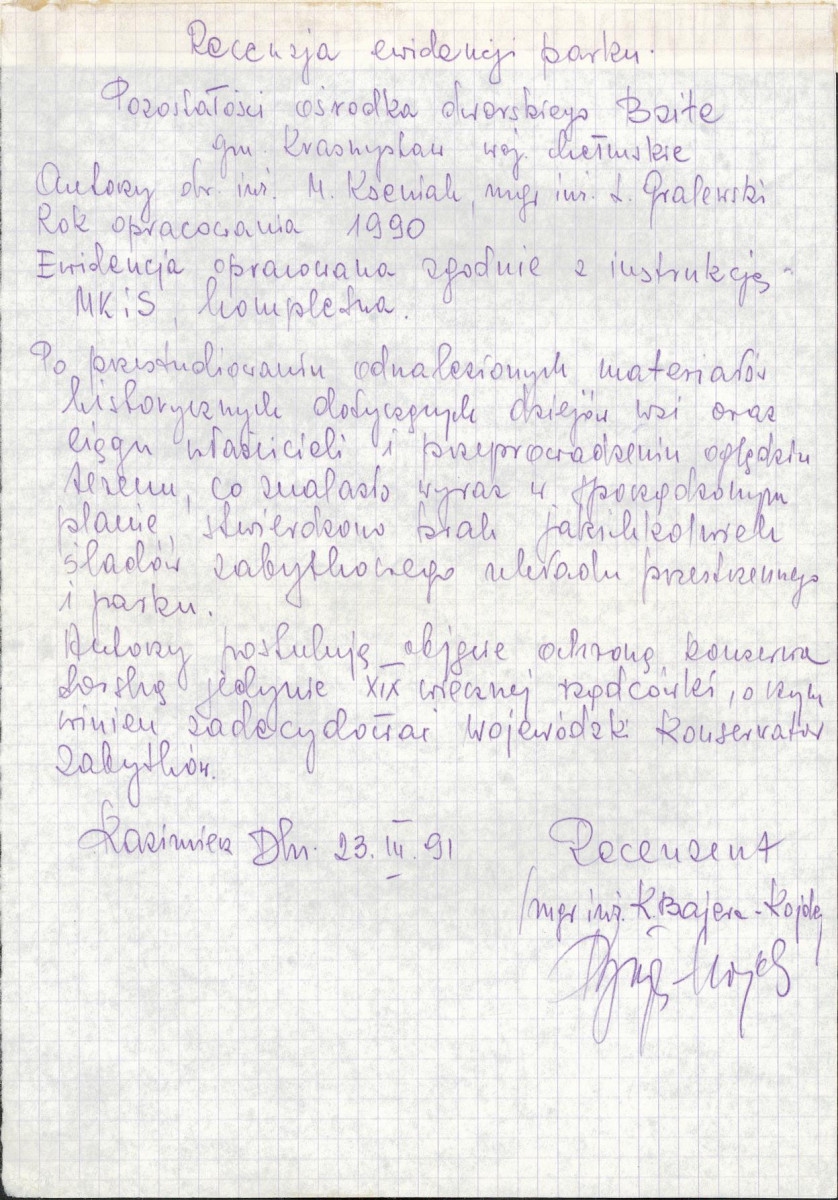 Recenzja ewidencji parku.
Pozostałości ośrodka dworskiego Bzite
gm. Krasnystaw woj. chełmskie
Autorzy dr. inż. M. Kseniak, mgr inż. L. Gralewski
Rok opracowania 1990
Ewidencja opracowana zgodnie z instrukcją
MKiS, kompletna.
Po przestudiowaniu odnalezionych materiałów
historycznych dotyczących dziejów wsi oraz
ciągu właścicieli i przeprowadzeniu oględzin
terenu, co znalazło wyraz w sporządzonym
planie, stwierdzono brak jakichkolwiek
śladów zabytkowego układu przestrzennego
i parku.
Autorzy postulują objęcie ochroną konserwa
torską jedynie XIX wiecznej rządcówki, o czym
winien zadecydować Wojewódzki Konserwator
Zabytków.
Kazimierz Dln. 23.III.91 Recenzent
/mgr inż. K. Bajera-Kojdę